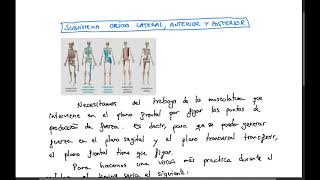 SUBSISTEMA OBLICUO LATERAL, ANTERIOR Y POSTERIOR
Necesitamos del trabajo de la musculatura que
interviene en el plano frontal para fijar los puntos de
producción de fuerza. Es decir, para que se pueda generar
fuerza en el plano sagital y el plano transversal transferir,
el plano frontal tiene que fijar.
Para hacernos una visión más practica durante el
sería el siguiente: